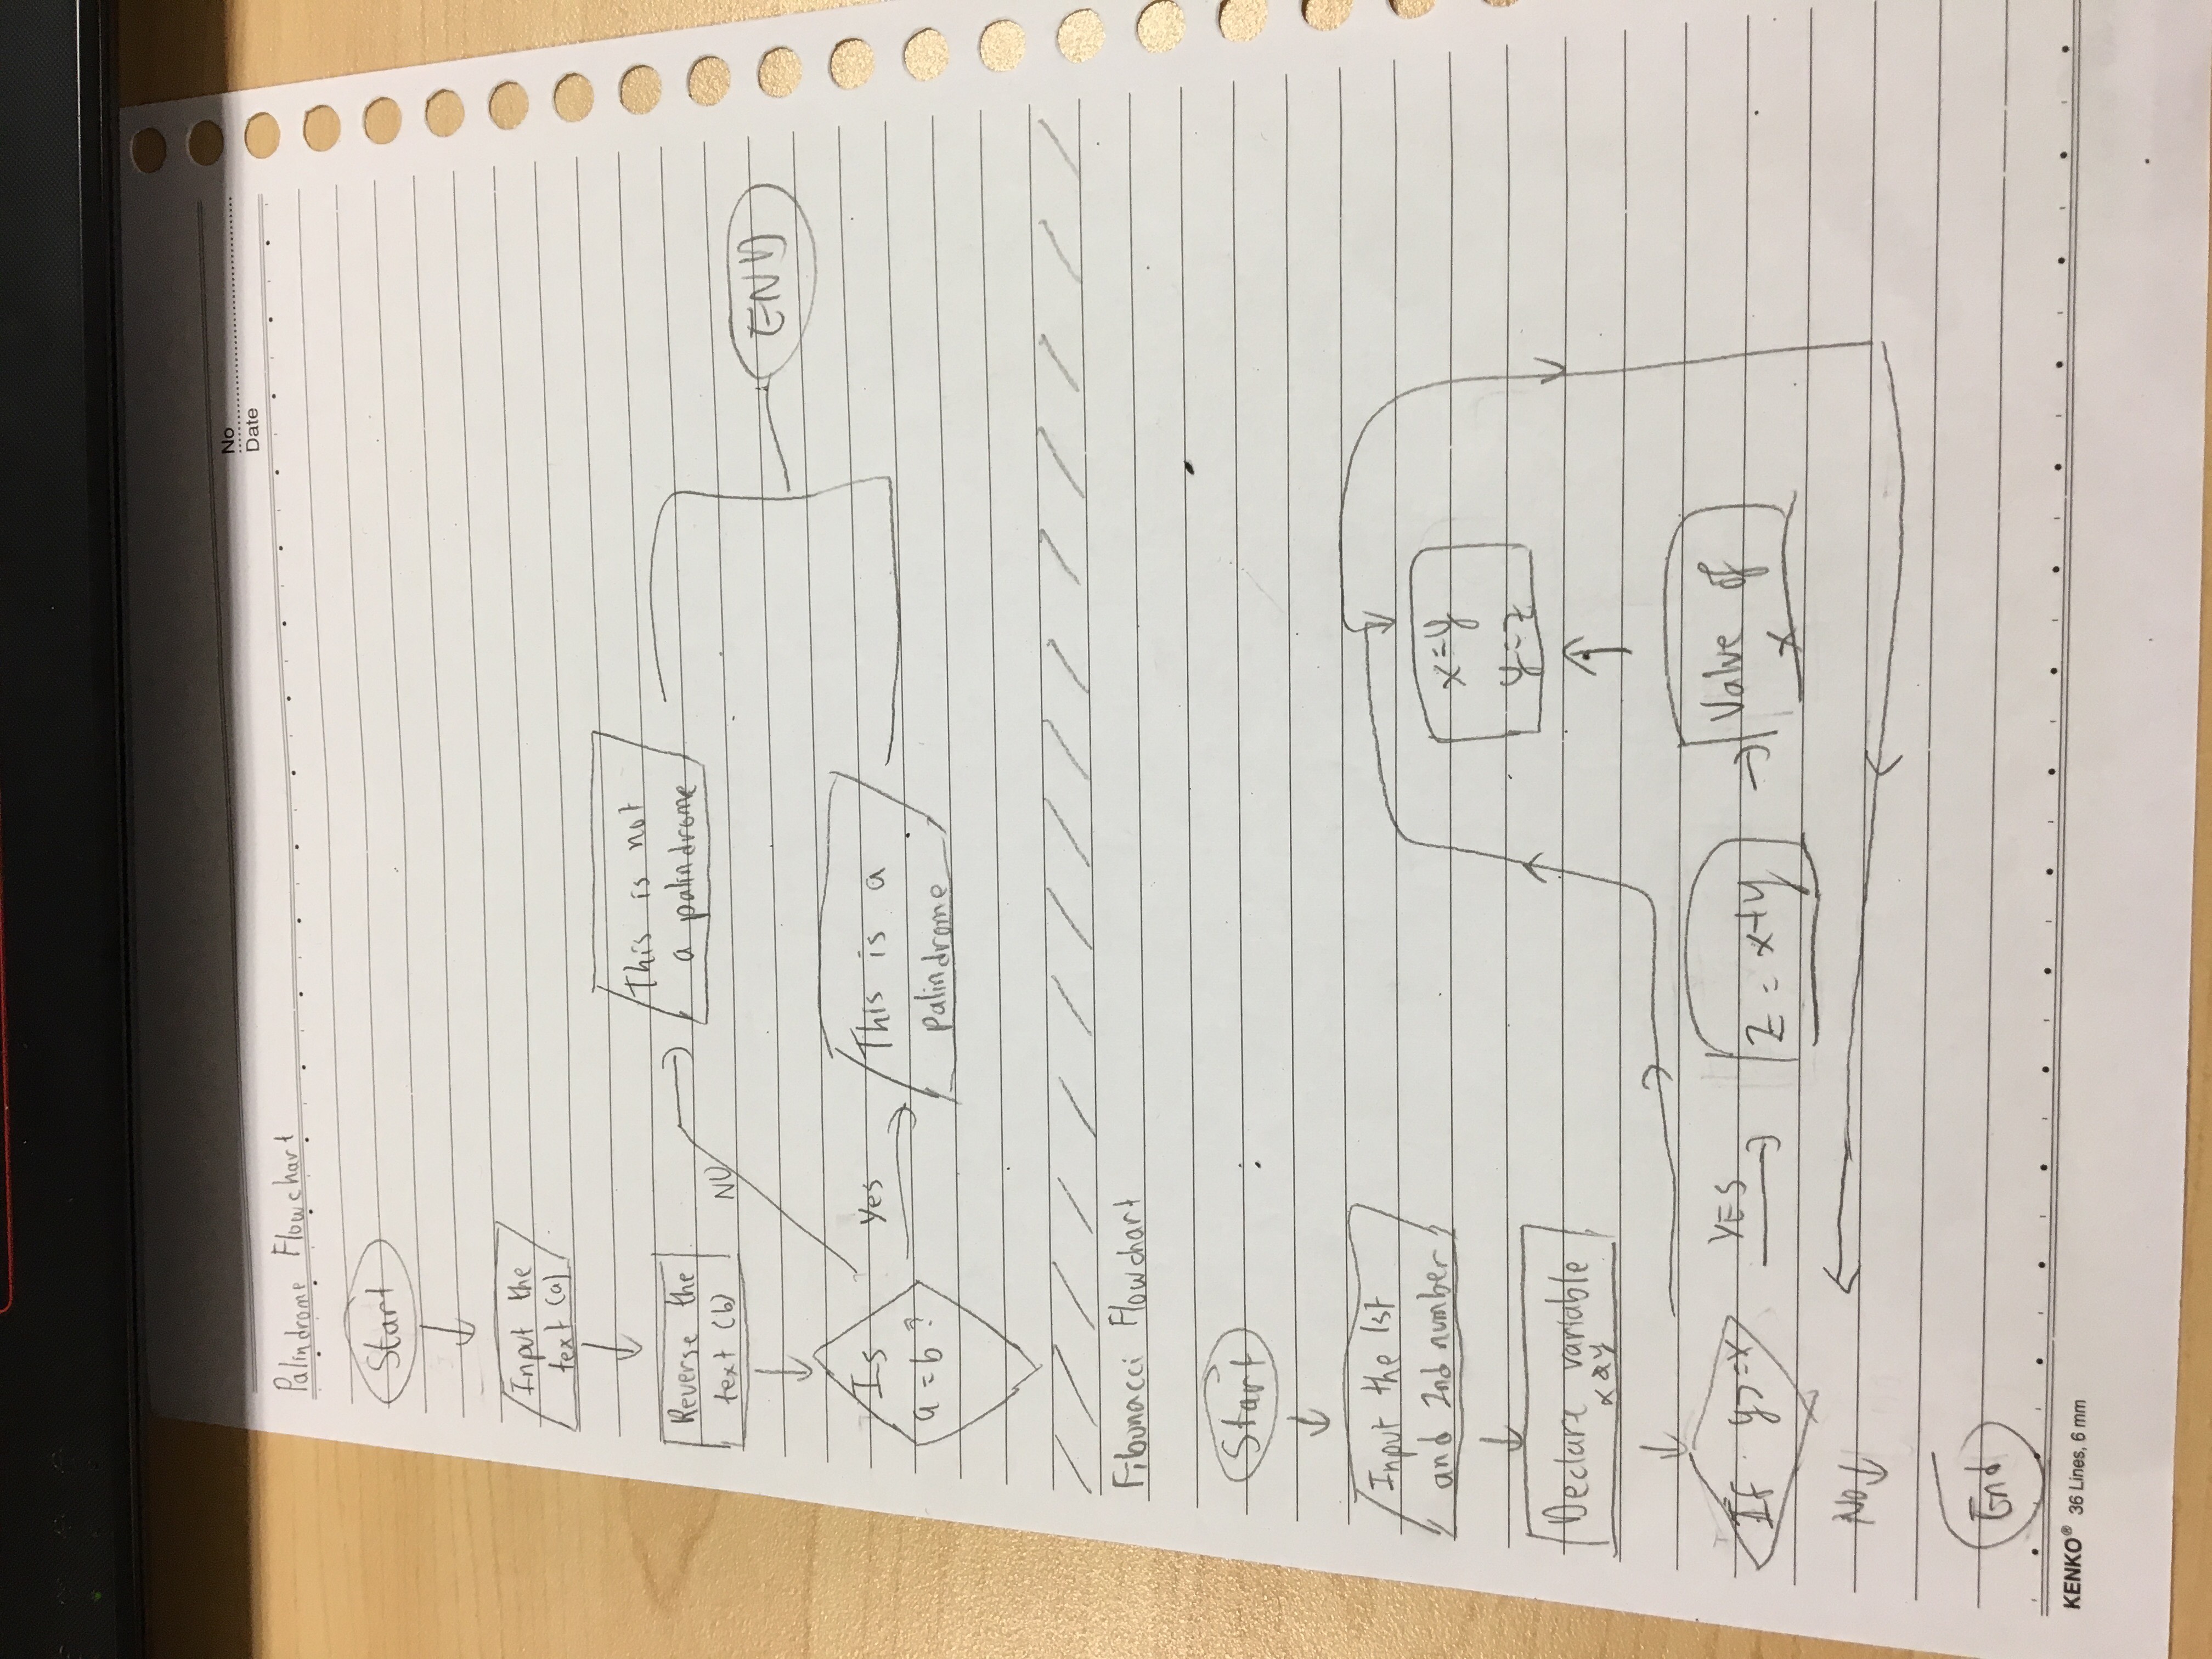 No
Date
Palindrome Flowchart
Start
Input the
text (a)
Reverse the
text (b)
NO
This is not
a palindrome
END
Is
a = b ?
Yes
This is a
palindrome
Fibonacci Flowchart
Start
Input the 1st
and 2nd number
Declare variable
x & y
x=y
y=z
If y>=x
YES
z = x+y
Value of
x
No
End
KENKO® 36 Lines, 6 mm